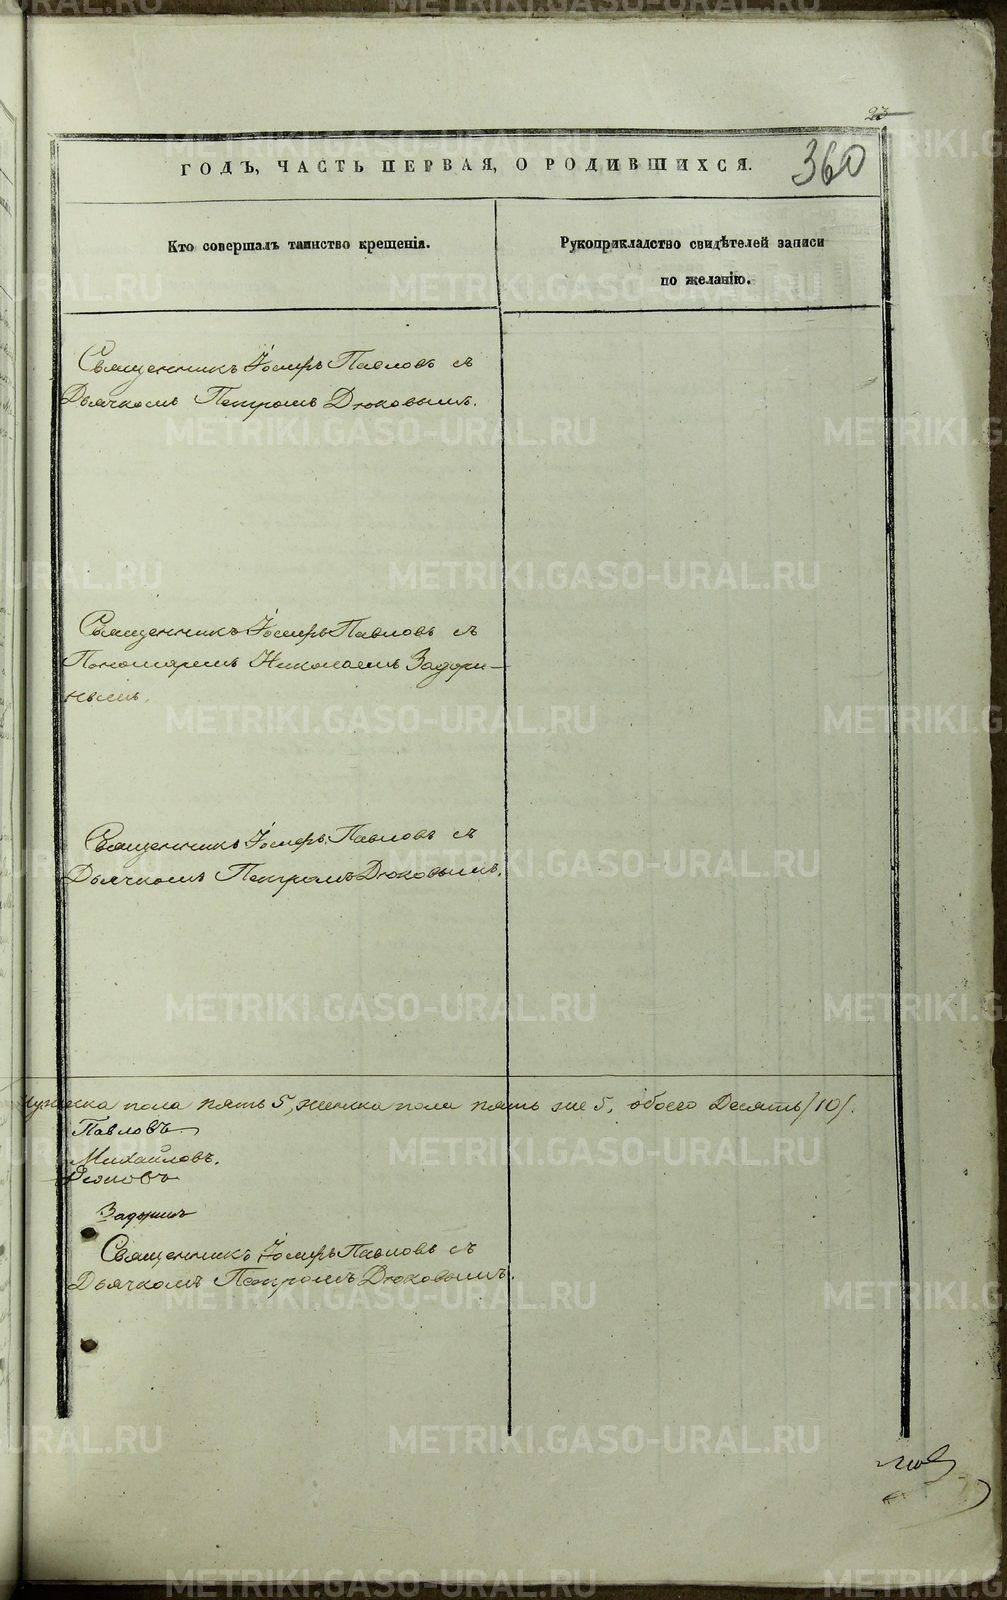 23
ГОДЪ, ЧАСТЬ ПЕРВАЯ, О РОДИВШИХСЯ.
360
Кто совершалъ таинство крещенія.
Рукоприкладство свидѣтелей записи
по желанію.
Священникъ Іосифъ Павловъ съ
Дьячкомъ Петромъ Дюковымъ.
Священникъ Іосифъ Павловъ съ
Пономаремъ Николаемъ Задори-
нымъ.
Священникъ Іосифъ Павловъ съ
Дьячкомъ Петромъ Дюковымъ.
Мужеска пола пять 5, женска пола пять же 5, обоего Десять /10/.
Павловъ
Михайловъ.
Дюковъ
Задоринъ
Священникъ Іосифъ Павловъ съ
Дьячкомъ Петромъ Дюковымъ.
METRIKI.GASO-URAL.RU